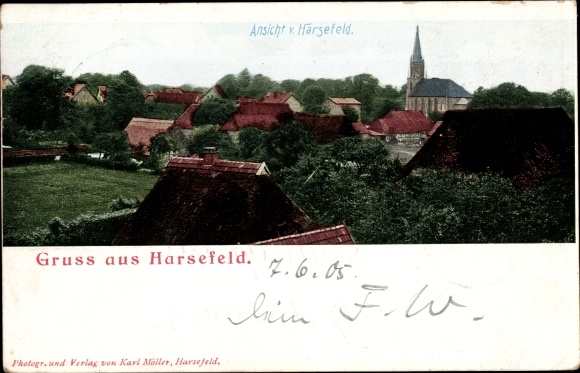 Ansicht v. Harsefeld.
Gruss aus Harsefeld.
7.6.05.
Dein F. W.
Photogr. und Verlag von Karl Möller, Harsefeld.